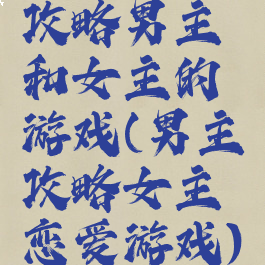 攻略男主
和女主的
游戏(男主
攻略女主
恋爱游戏)